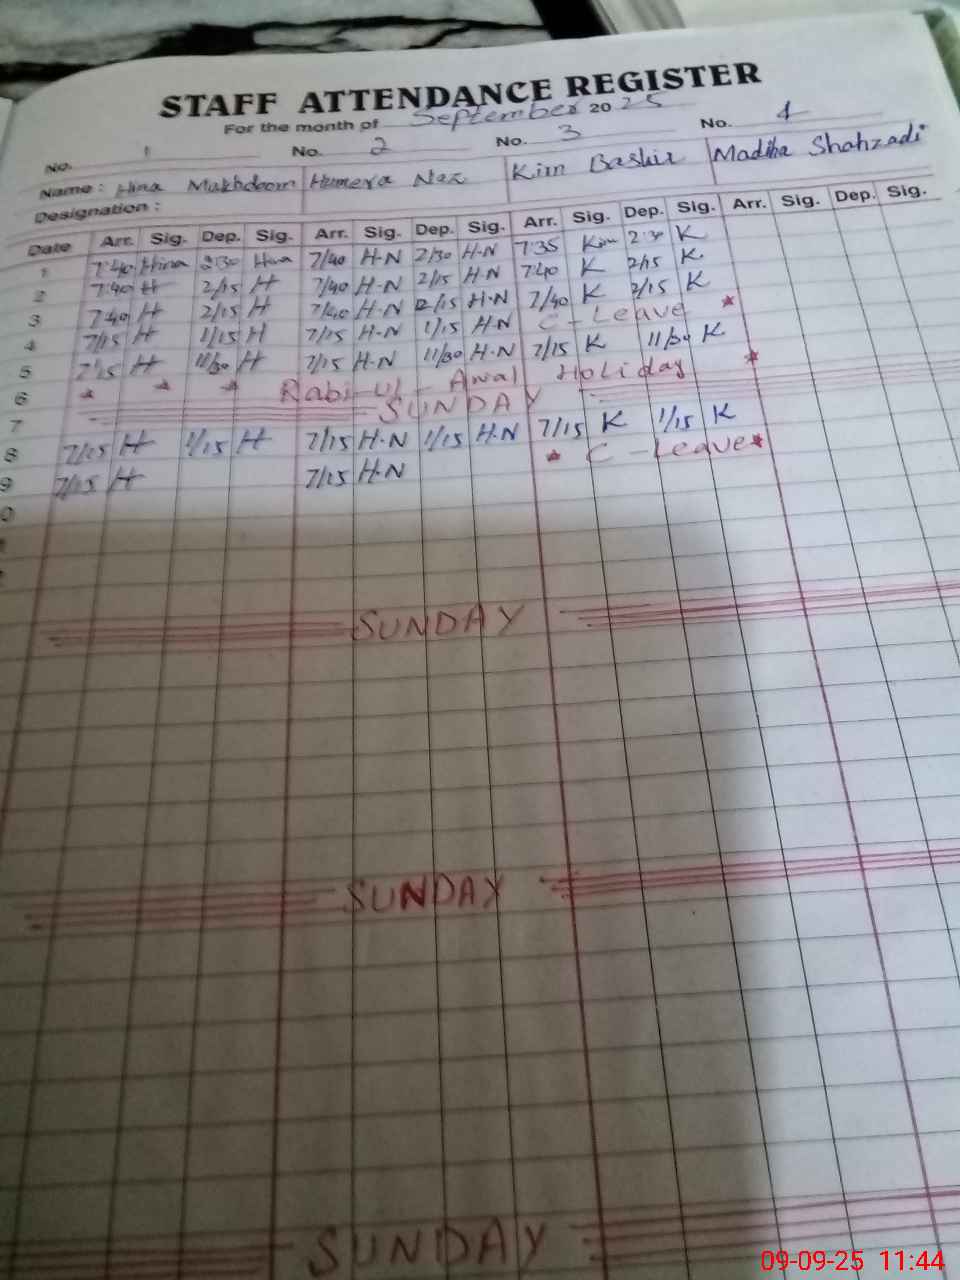 STAFF ATTENDANCE REGISTER
For the month of September 2025
No. 1 No. 2 No. 3 No. 4
Name: Hina Makhdoom Humera Naz Kirn Bashir Madiha Shahzadi
Designation:
Date Arr. Sig. Dep. Sig. Arr. Sig. Dep. Sig. Arr. Sig. Dep. Sig. Arr. Sig. Dep. Sig.
1 7:40 Hina 2:30 Hina 7/40 H-N 2/30 H-N 7:35 Kirn 2:30 K
2 7:40 H 2/15 H 7/40 H-N 2/15 H-N 7:40 K 2/15 K
3 7:40 H 2/15 H 7/40 H-N 2/15 H-N 7/40 K 2/15 K
4 7/15 H 1/15 H 7/15 H-N 1/15 H-N C-Leave
5 7:15 H 11/30 H 7/15 H-N 11/30 H-N 7/15 K 11/30 K
6 Rabi-Ul-Awal Holiday
7 SUNDAY
8 7/15 H 1/15 H 7/15 H-N 1/15 H-N 7/15 K 1/15 K
9 7/15 H 7/15 H-N C-Leave
0
SUNDAY
SUNDAY
SUNDAY
09-09-25 11:44